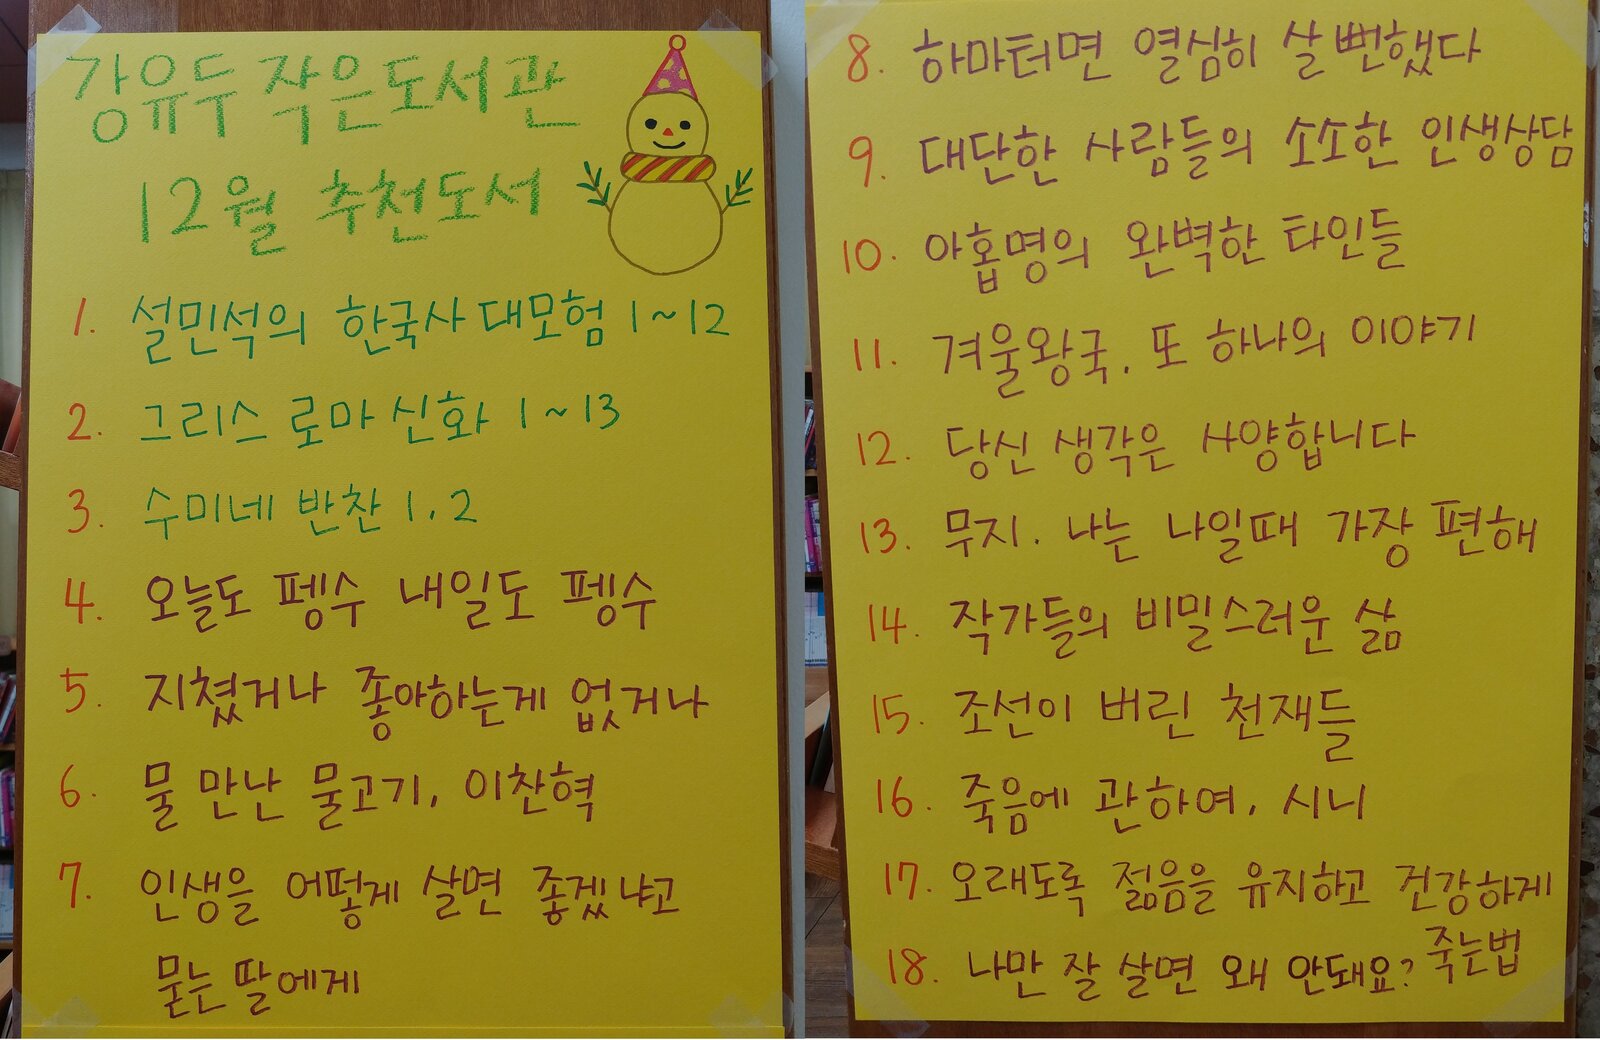 강유두 작은도서관
12월 추천도서
1. 설민석의 한국사 대모험 1~12
2. 그리스 로마 신화 1~13
3. 수미네 반찬 1, 2
4. 오늘도 펭수 내일도 펭수
5. 지쳤거나 좋아하는게 없거나
6. 물 만난 물고기, 이찬혁
7. 인생을 어떻게 살면 좋겠냐고
묻는 딸에게
8. 하마터면 열심히 살 뻔했다
9. 대단한 사람들의 소소한 인생상담
10. 아홉명의 완벽한 타인들
11. 겨울왕국, 또 하나의 이야기
12. 당신 생각은 사양합니다
13. 무지. 나는 나일때 가장 편해
14. 작가들의 비밀스러운 삶
15. 조선이 버린 천재들
16. 죽음에 관하여, 시니
17. 오래도록 젊음을 유지하고 건강하게
죽는법
18. 나만 잘 살면 왜 안돼요?